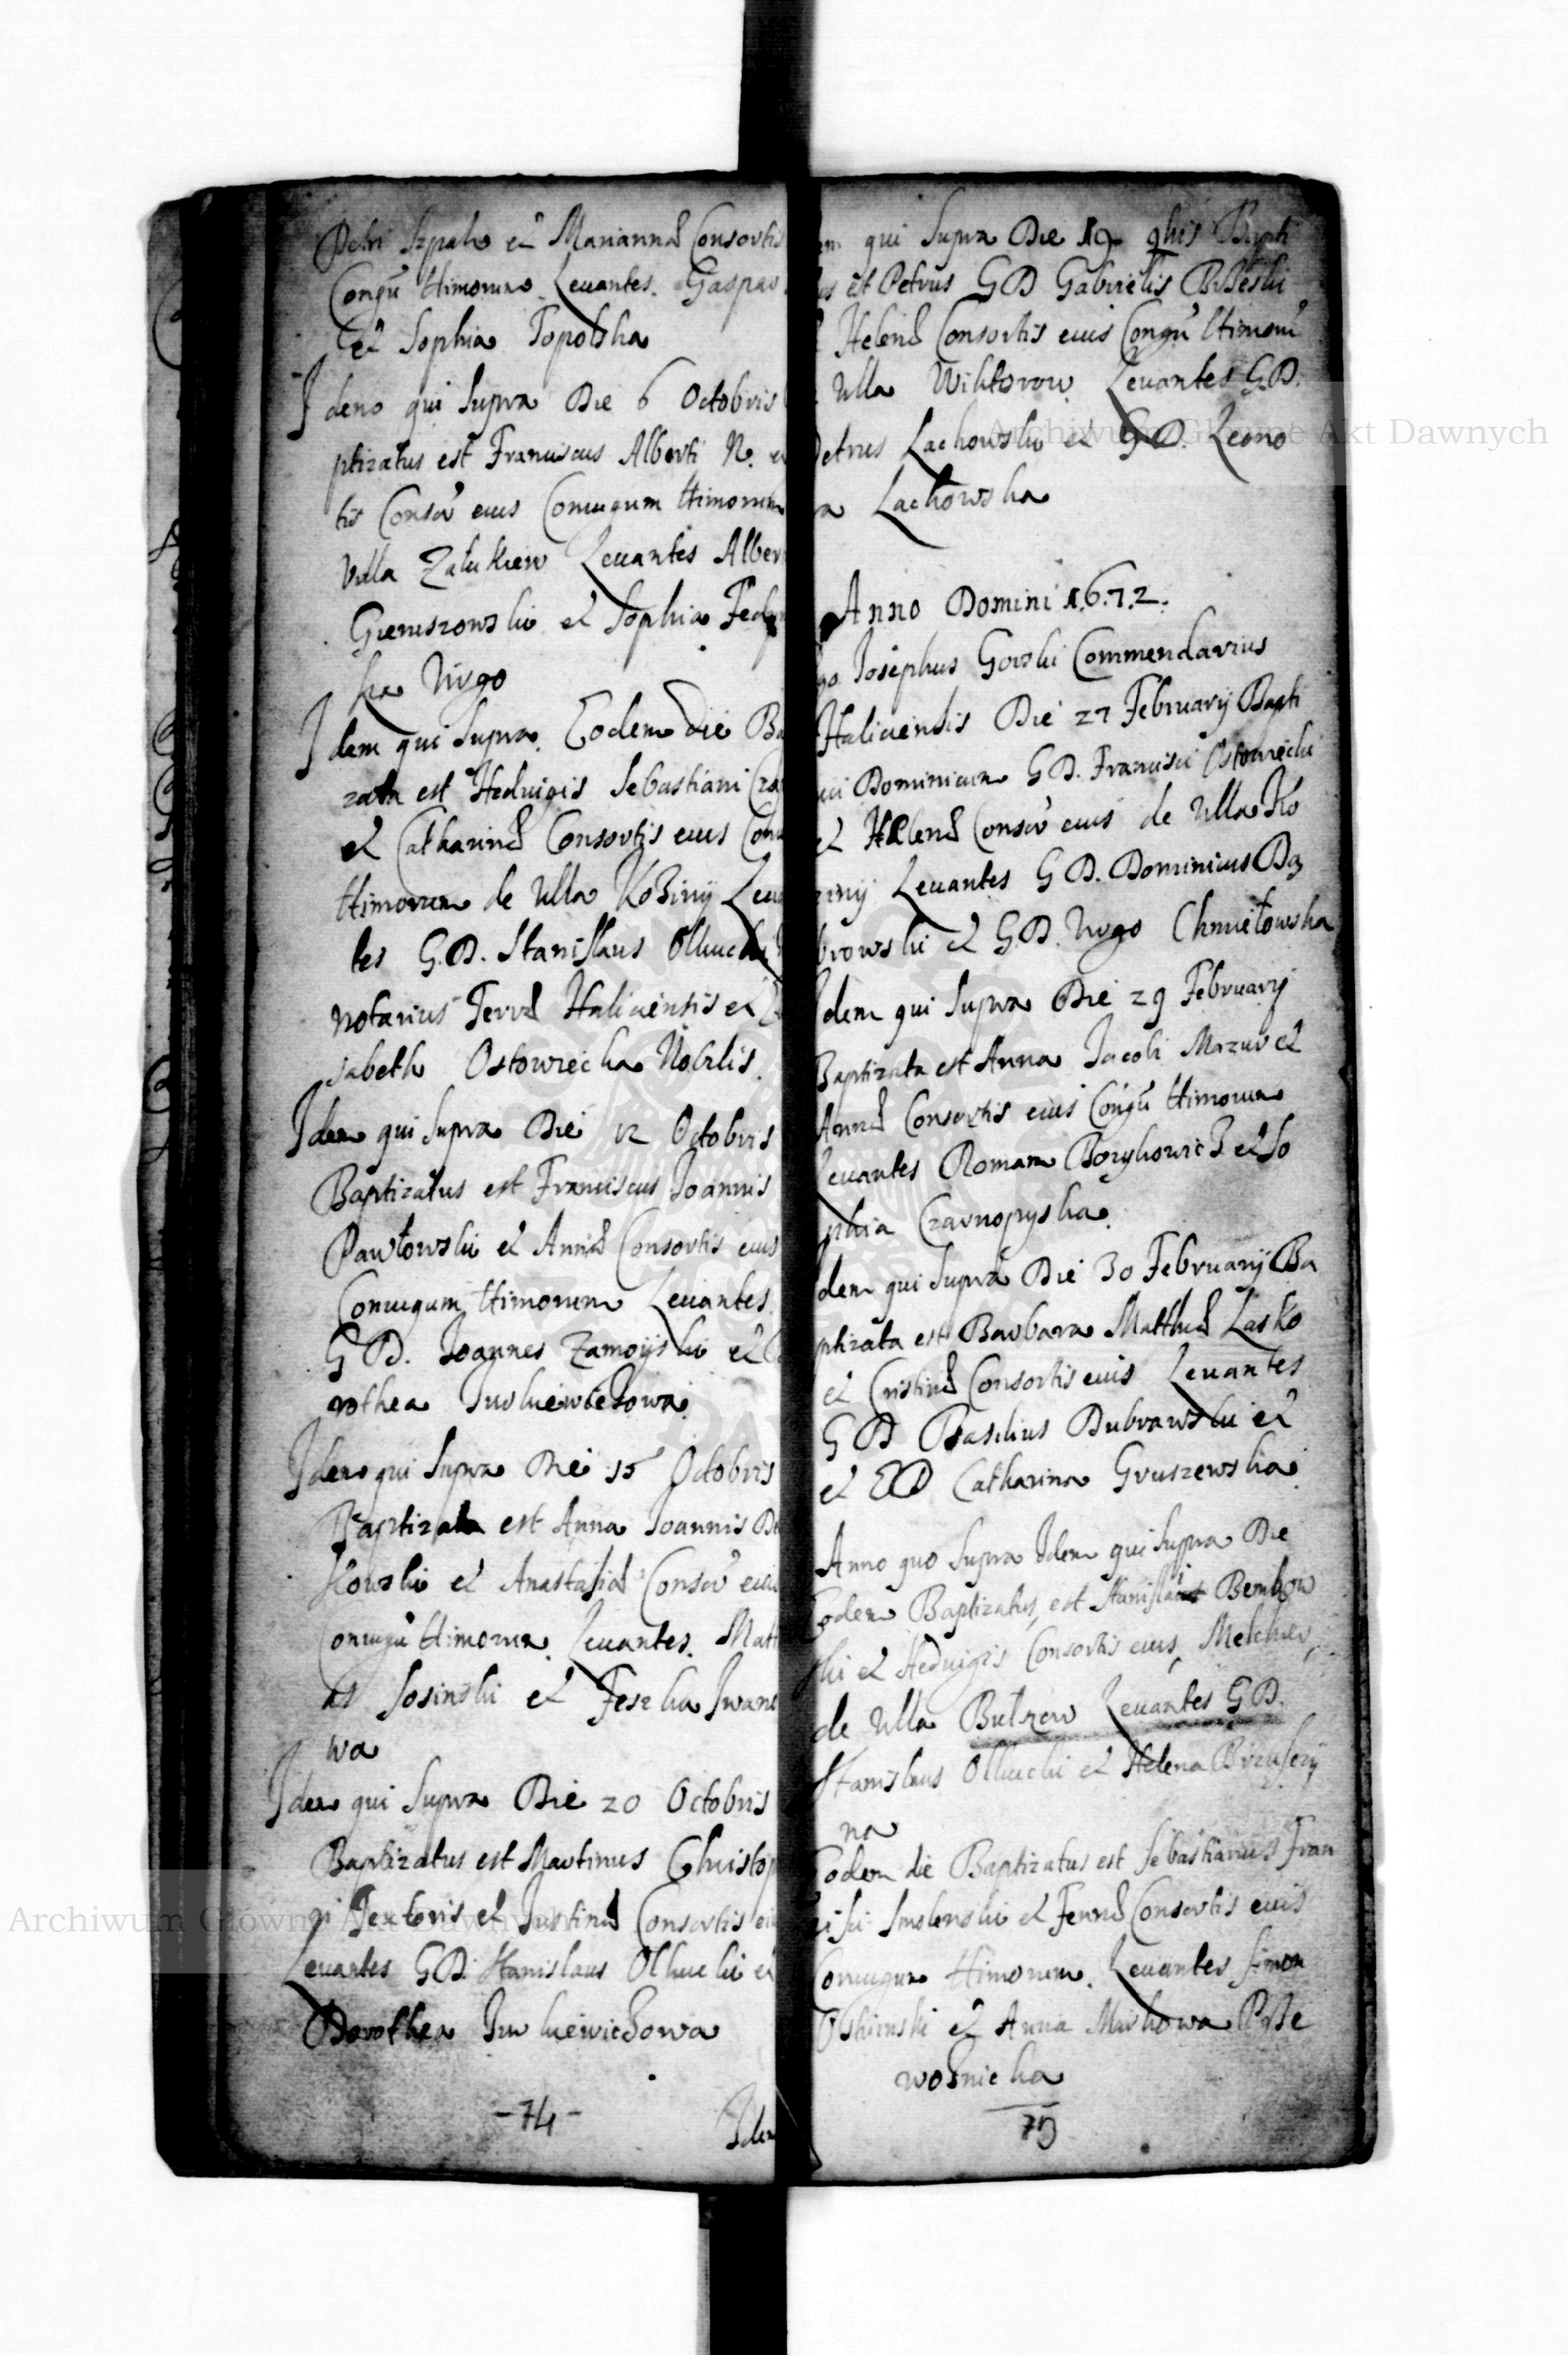 Petri Szpak et Mariannæ Consortis
Conigũ ttimorum Leuantes. Gaspar
et Sophia Topolska
Idem qui supra Die 6 Octobris
ptizatus est Franciscus Alberti N. e
tis Conso eius Coniugum ttimorum
Villa Załukiew Leuantes Alber
Gieruszowski et Sophia Fed
ska Virgo
Idem qui supra Eodem die Ba
zata est Heduigis Sebastiani Cza
et Catharinæ Consortis eius Con
ttimorum de Villa Koziny Leua
tes G.D. Stanislaus Olhucki
notarius Terræ Haliciensis et
sabeth Ostowiecka Nobilis.
Idem qui supra Die 12 Octobris
Baptizatus est Franciscus Joannis
Pawłowski et Annæ Consortis eius
Coniugum ttimorum Leuantes
G D. Joannes Zamoyski et
rothea Jurkiewiczowa
Idem qui supra Die 15 Octobris
Baptizata est Anna Joannis De
kowski et Anastasiæ Conso eiu
Coniugũ ttimorum Leuantes. Matt
as Sosinski et Feszka Iwano
wa
Idem qui supra Die 20 Octobris
Baptizatus est Martinus Christop
ri Textoris et Iustinæ Consortis ei
Leuantes G D. Stanislaus Olhucki et
Dorothea Jurkiewiczowa
-74-
Idem
em qui supra Die 19 9bris Bapti
us est Petrus G D Gabrielis
Helenæ Consortis eius Congũ ttimorũ
Villa Wiktorow Leuantes G.D.
Petrus Lachowski et G D. Leono
ra Lachowska
Anno Domini 1.6.7.2.
go Josephus Gorski Commendarius
Haliciensis Die 27 February Bapti
ui Dominicum G D. Francisci Ostowiecki
et Helenæ Conso eius de Villa Ko
ziny Leuantes G D. Dominicus Da
browski et G.D. Virgo Chmiełowska
Idem qui supra Die 29 February
Baptizata est Anna Jacobi Mazur et
Annæ Consortis eius Congũ ttimorum
Leuantes Roman Borykowicz et So
phia Czarnopyska
dem qui supra Die 30 February Ba
ptizata est Barbara Matthiæ Lasko
et Cristinæ Consortis eius Leuantes
G D Basilius Dubrawski et
et G D Catharina Gruszewska
Anno quo supra Idem qui supra Die
Eodem Baptizatus est Stanislaus Bembow
ski et Heduigis Consortis eius, Melchier
de Villa Bulzow Leuantes G D.
Stanislaus Olhucki et Helena
na
Eodem die Baptizatus est Sebastianus Fran
cisci Smolenski et Fennæ Consortis eius
Coniugum ttimorum. Leuantes Simon
Oskienski et Anna Mirkowa Prze
woznicka
75
Archiwum Główne Akt Dawnych
Archiwum Główne Akt Dawnych